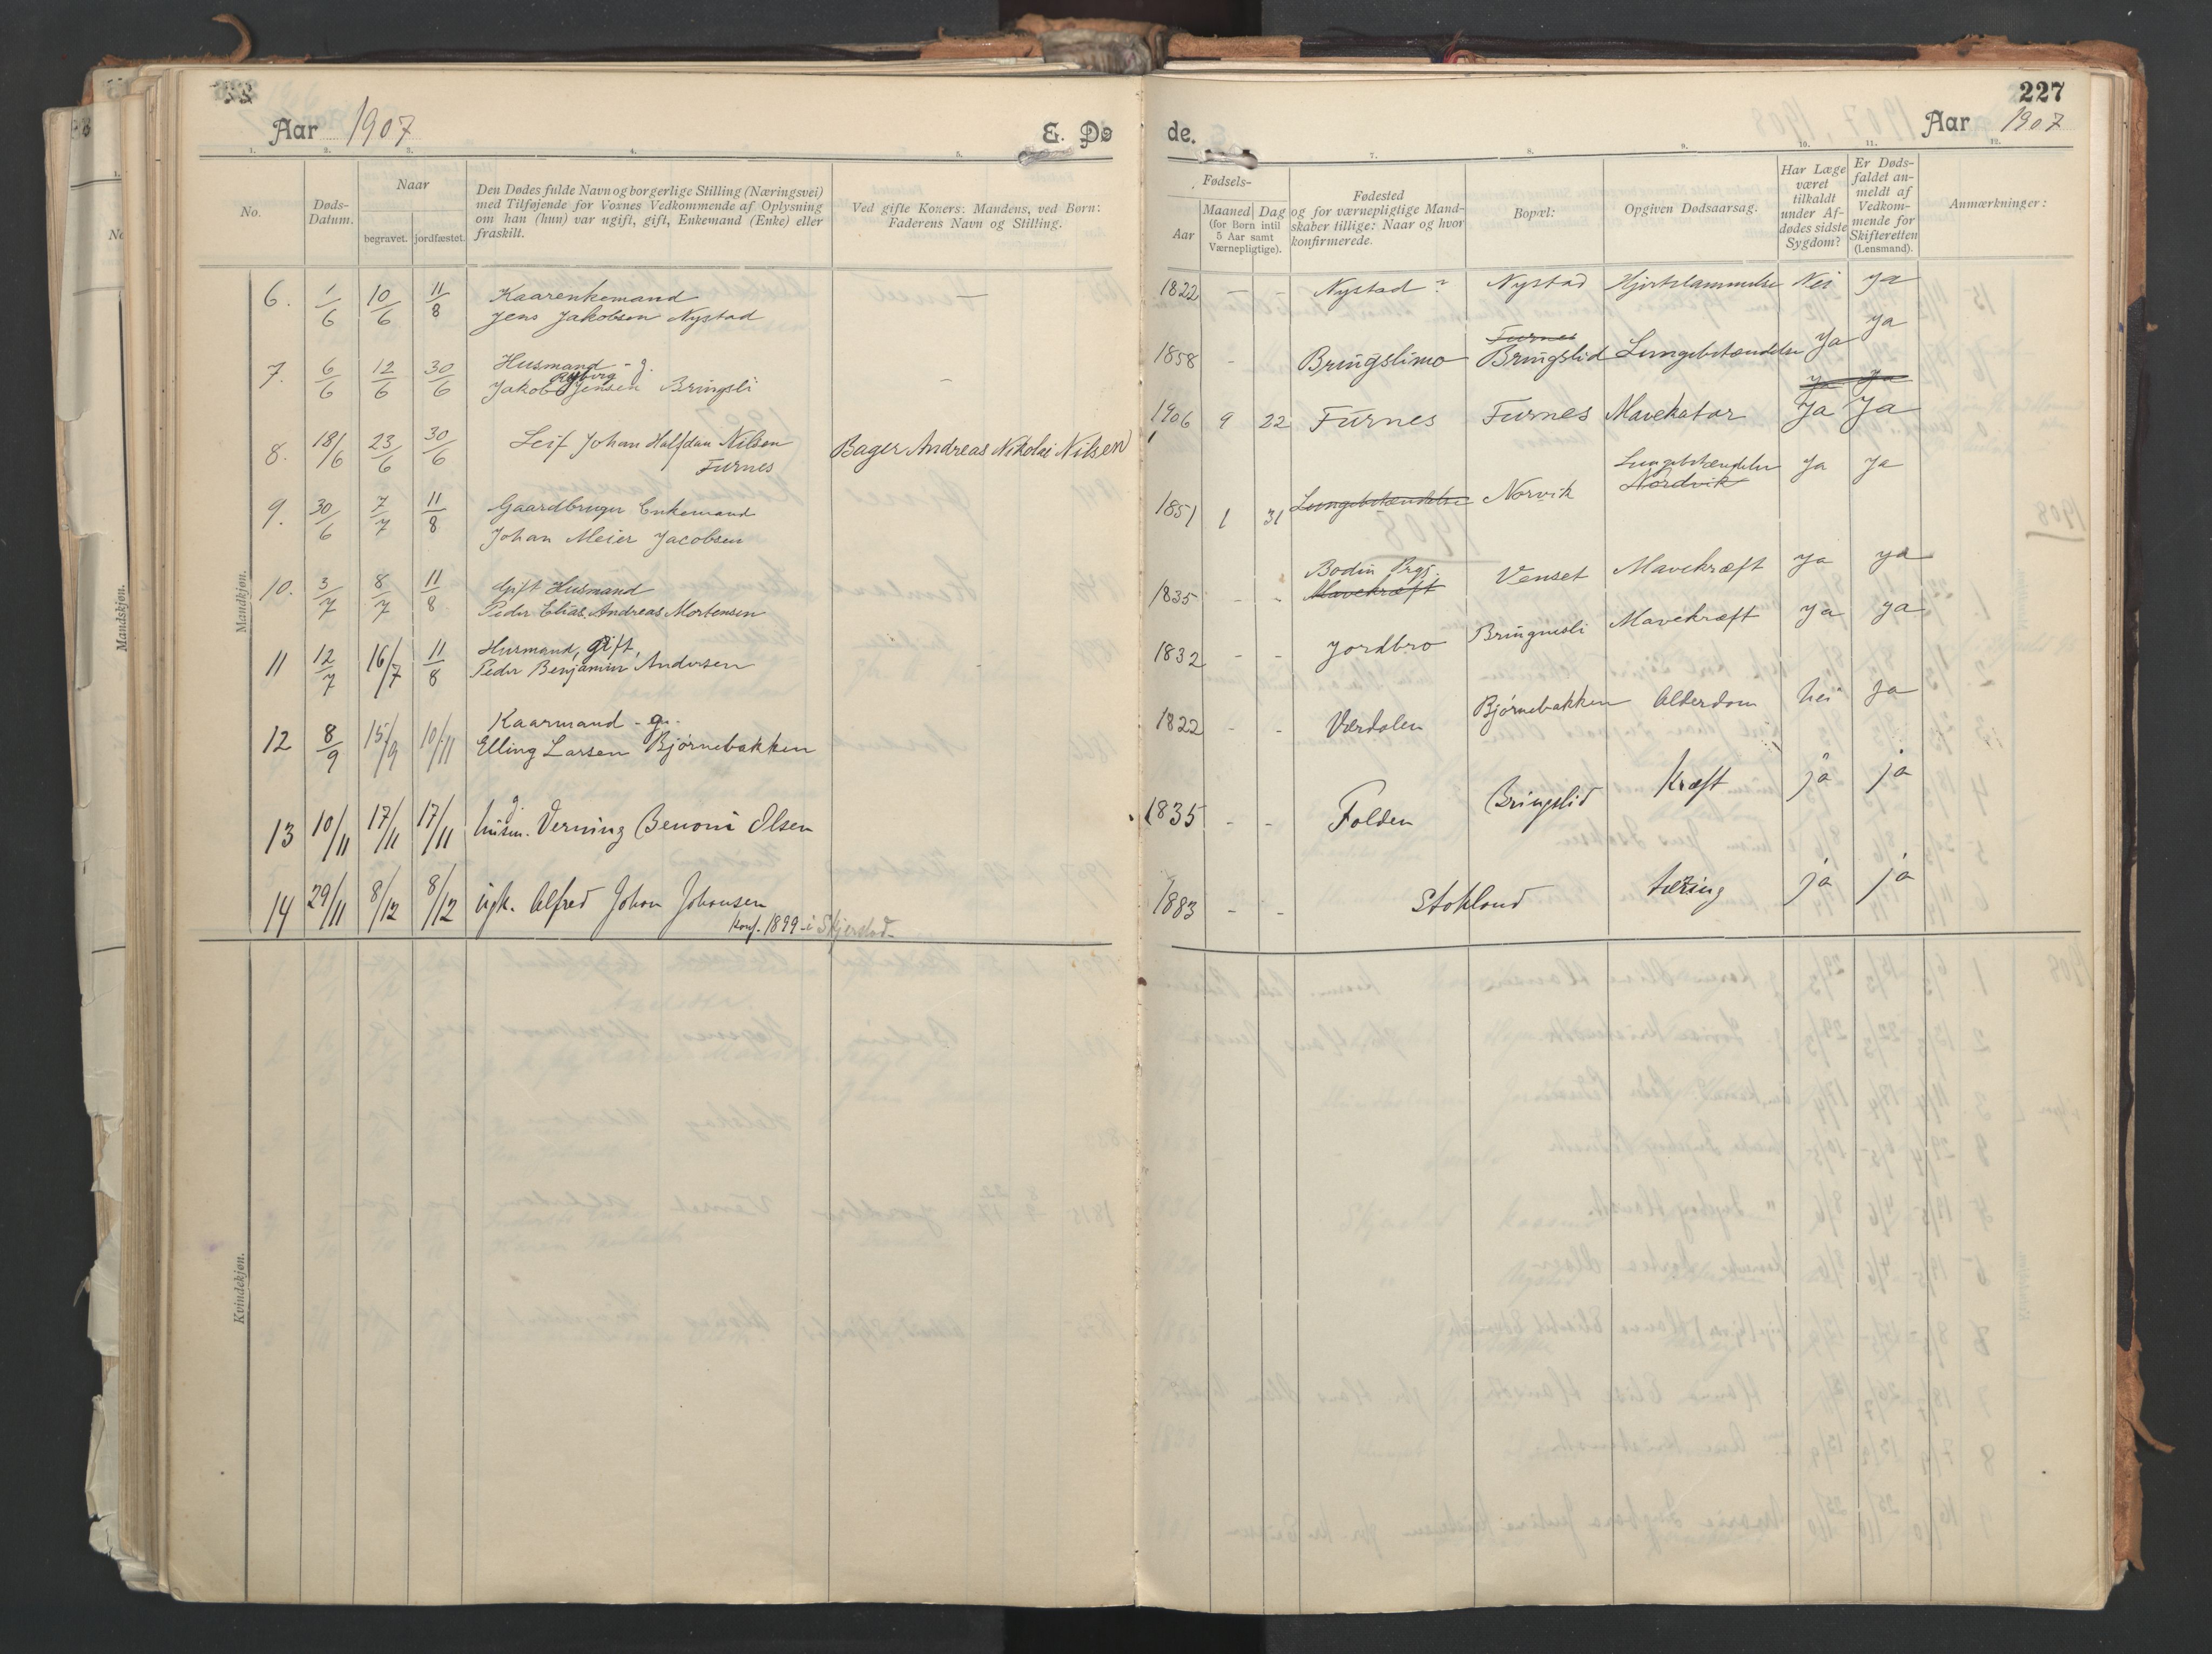 227
Aar 1907 E. Dø de. Aar 1907
1. 2. 3. 4. 5. 7. 8. 9. 10. 11. 12.
No.
Døds-
Datum.
Naar
begravet. jordfæstet.
Den Dødes fulde Navn og borgerlige Stilling (Næringsvei)
med Tilføjende for Voxnes Vedkommende af Oplysning
om han (hun) var ugift, gift, Enkemand (Enke) eller
fraskilt.
Ved gifte Koners: Mandens, ved Børn:
Faderens Navn og Stilling.
Fødsels-
Aar
Maaned Dag
(for Børn intil
5 Aar samt
Værnepligtige).
Fødested
og for værnepligtige Mand-
skaber tillige: Naar og hvor
konfirmerede.
Bopæl:
Opgiven Dødsaarsag.
Har Læge
været
tilkaldt
under Af-
dødes sidste
Sygdom?
Er Døds-
faldet an-
meldt af
Vedkom-
mende for
Skifteretten
(Lensmand).
Anmærkninger:
Mandkjøn.
6. 1/6 10/6 11/8 Kaarenkemand
Jens Jakobsen Nystad
— 1822 — - Nystad ? Nystad Hjertelammelse Nei ja
7. 6/6 12/6 30/6 Husmand - g.
Ryberg
Jakob Jensen Bringsli
- 1858 - Bringslimo
Furnes
Bringslid Lungebetændelse Ja Ja
Ja Ja
8. 18/6 23/6 30/6 Leif Johan Halfdan Nilsen
Furnes
Bager Andreas Nikolai Nilsen 1906 9 22 Furnes Furnes Mavekatar Ja Ja
9. 30/6 7/7 11/8 Gaardbruger Enkemand
Johan Meier Jacobsen
1851 1 31 Lungebetændelse Norvik
Lungebetændelse
Nordvik
Ja Ja
10. 3/7 8/7 11/8 Gift Husmand
Peder Elias Andreas Mortensen
1835 - - Bodin Prgj.
Mavekræft
Venset Mavekræft ja ja
11 12/7 16/7 11/8 Husmand, gift,
Peder Benjamin Andersen
1832 - - Jordbro Bringnesli Mavekræft ja ja
12 8/9 15/9 10/11 Kaarmand - g. -
Elling Larsen Bjørnebakken
1822 - - Værdalen Bjørnebakken Alderdom nei ja
13 10/11 17/11 17/11 g.
husm. Verning Benoni Olsen
1835 - - Folden Bringslid Kræft ja ja
14 29/11 8/12 8/12 ugk. Alfred Johan Johansen
Konf. 1899 - i Skjerstad -
1883 - - Stokland tæring ja ja
Kvindekjøn.
Mandskjøn.